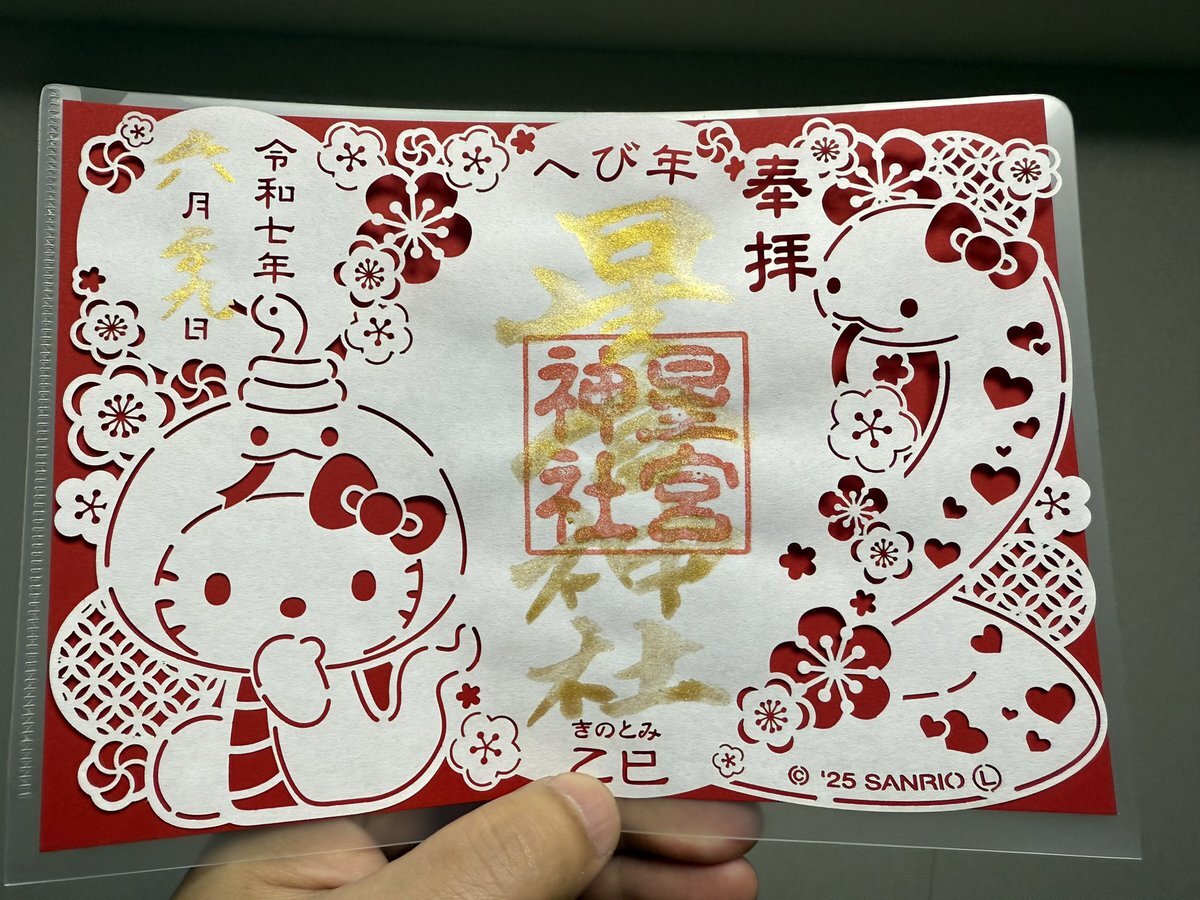 奉拝
へび年
星宮神社
星宮
神社
きのとみ
乙巳
令和七年
六月二十九日
© '25 SANRIO Ⓛ